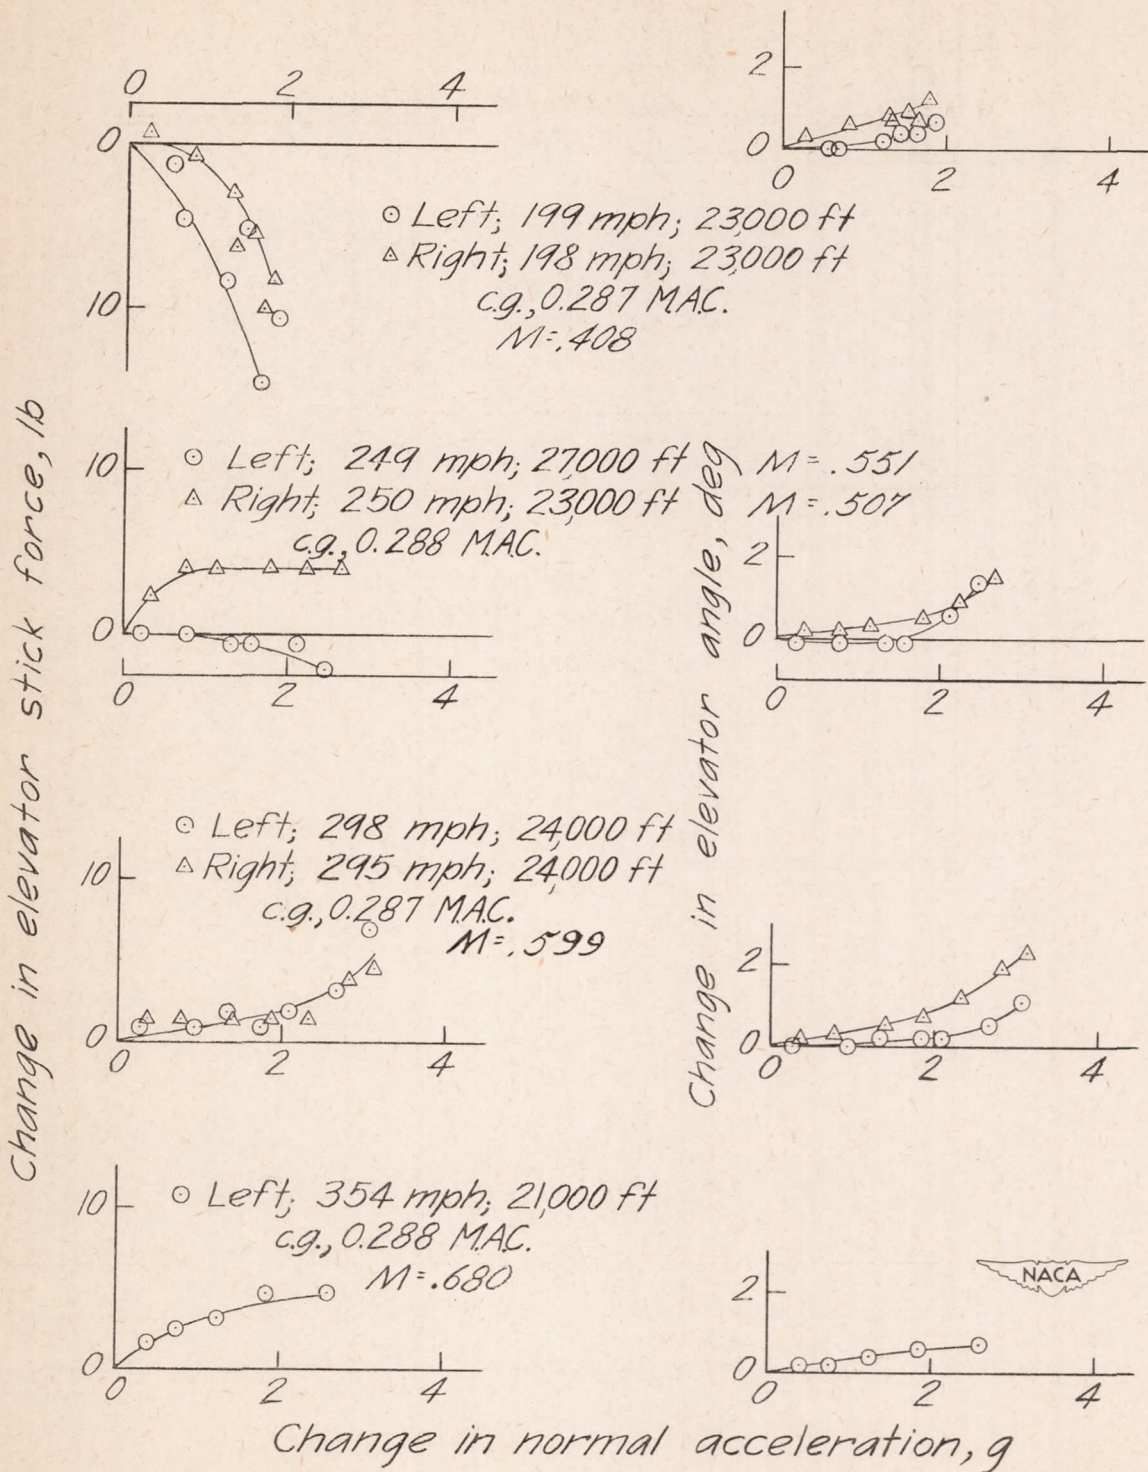 0 2 4
0
10
2
0
0 2 4
Left; 199 mph; 23,000 ft
Right; 198 mph; 23,000 ft
c.g., 0.287 M.A.C.
M=.408
Change in elevator stick force, lb
10
0
0 2 4
Left; 249 mph; 27,000 ft M=.551
Right; 250 mph; 23,000 ft M=.507
c.g., 0.288 M.A.C.
Change in elevator angle, deg
2
0
0 2 4
Left; 298 mph; 24,000 ft
Right; 295 mph; 24,000 ft
c.g., 0.287 M.A.C.
M=.599
10
0
0 2 4
2
0
0 2 4
Left; 354 mph; 21,000 ft
c.g., 0.288 M.A.C.
M=.680
10
0
0 2 4
NACA
2
0
0 2 4
Change in normal acceleration, g